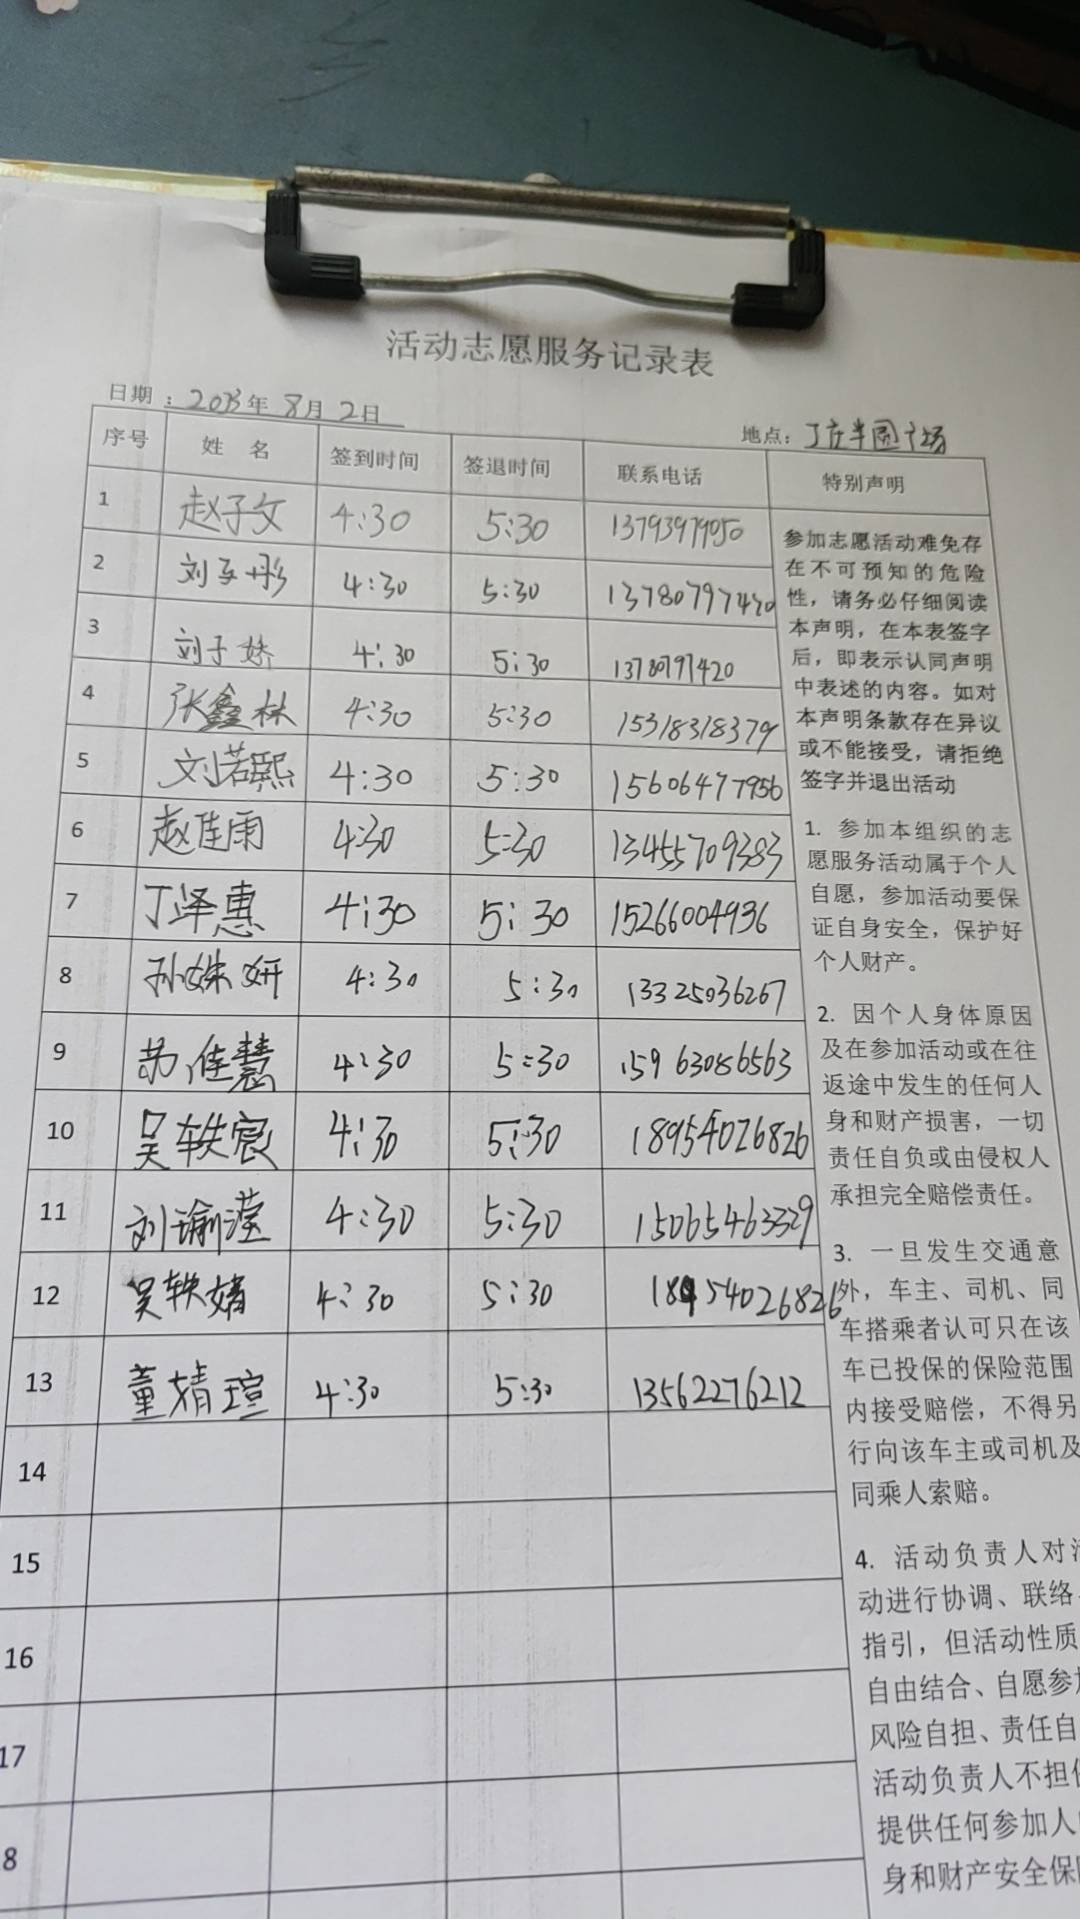 活动志愿服务记录表
日期：2023年8月2日
地点：丁庄半圆广场
序号 姓 名 签到时间 签退时间 联系电话 特别声明
1 赵子文 4:30 5:30 13793979050
2 刘子彤 4:30 5:30 13780797420
3 刘子娇 4:30 5:30 13780797420
4 张鑫林 4:30 5:30 15318318379
5 刘若熙 4:30 5:30 15606477956
6 赵佳雨 4:30 5:30 13455709383
7 丁泽惠 4:30 5:30 15266004936
8 孙姝妍 4:30 5:30 13325036267
9 苏佳慧 4:30 5:30 15963086563
10 吴轶宸 4:30 5:30 18954026826
11 刘瑜滢 4:30 5:30 15065463329
12 吴轶婧 4:30 5:30 18954026826
13 董婧瑄 4:30 5:30 13562276212
14
15
16
17
8
参加志愿活动难免存
在不可预知的危险
性，请务必仔细阅读
本声明，在本表签字
后，即表示认同声明
中表述的内容。如对
本声明条款存在异议
或不能接受，请拒绝
签字并退出活动
1. 参加本组织的志
愿服务活动属于个人
自愿，参加活动要保
证自身安全，保护好
个人财产。
2. 因个人身体原因
及在参加活动或在往
返途中发生的任何人
身和财产损害，一切
责任自负或由侵权人
承担完全赔偿责任。
3. 一旦发生交通意
外，车主、司机、同
车搭乘者认可只在该
车已投保的保险范围
内接受赔偿，不得另
行向该车主或司机及
同乘人索赔。
4. 活动负责人对活
动进行协调、联络、
指引，但活动性质
自由结合、自愿参加
风险自担、责任自
活动负责人不担任
提供任何参加人
身和财产安全保